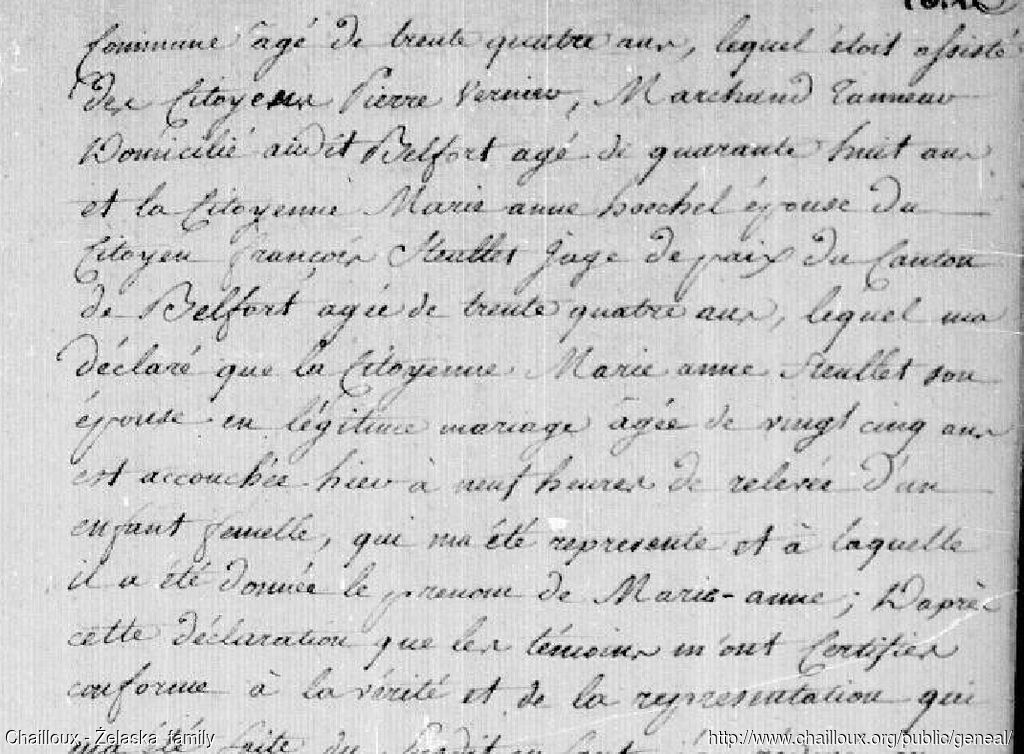 Commune agé de trente quatre ans, lequel étoit assisté
des Citoyens Pierre Vernier, Marchand Tanneur
Domicilié audit Belfort agé de quarante huit ans
et la Citoyenne Marie anne hoechel épouse du
Citoyen françois Steullet Juge de paix du Canton
de Belfort agée de trente quatre ans, lequel ma
déclaré que la Citoyenne Marie anne Steullet son
épouse en légitime mariage âgée de vingt cinq ans
est accouchée hier à neuf heures de relevée d'un
enfant femelle, qui ma été representé et à laquelle
il a été donnée le prenom de Marie-anne; Daprès
cette déclaration que les témoins m'ont Certifier
conforme à la vérité et de la representation qui
ma été faite du susdit enfant
Chailloux - Żelaska family
http://www.chailloux.org/public/geneal/